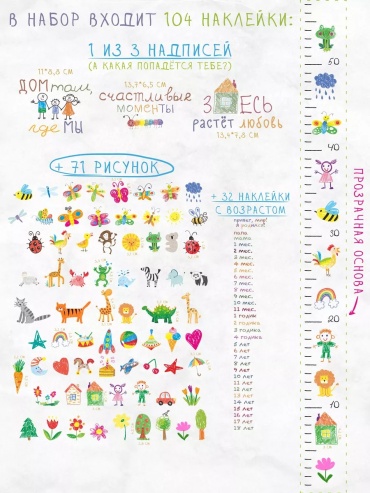 В НАБОР ВХОДИТ 104 НАКЛЕЙКИ:
1 ИЗ 3 НАДПИСЕЙ
(А КАКАЯ ПОПАДЁТСЯ ТЕБЕ?)
11*8,8 СМ
ДОМ там,
где МЫ
13,7*6,5 СМ
счастливые
моменты
ЗДЕСЬ
растёт любовь
13,4*7,8 СМ
+ 71 РИСУНОК
+ 32 НАКЛЕЙКИ
С ВОЗРАСТОМ
привет, мир!
Я родился!
папа
мама
1 мес.
2 мес.
3 мес.
4 мес.
5 мес.
6 мес.
7 мес.
8 мес.
9 мес.
10 мес.
11 мес.
1 годик
2 годика
3 годика
4 годика
5 лет
6 лет
7 лет
8 лет
9 лет
10 лет
11 лет
12 лет
13 лет
14 лет
15 лет
16 лет
17 лет
18 лет
50
40
30
20
10
ПРОЗРАЧНАЯ ОСНОВА